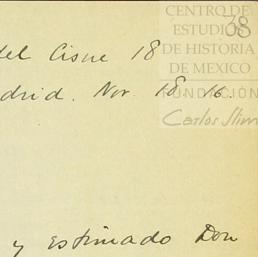 CENTRO DE
38
ESTUDIOS
DE HISTORIA
DE MEXICO
FUNDACIÓN
Carlos Slim
del Cisne 18
drid. Nov. 18. 16.
y estimado Don